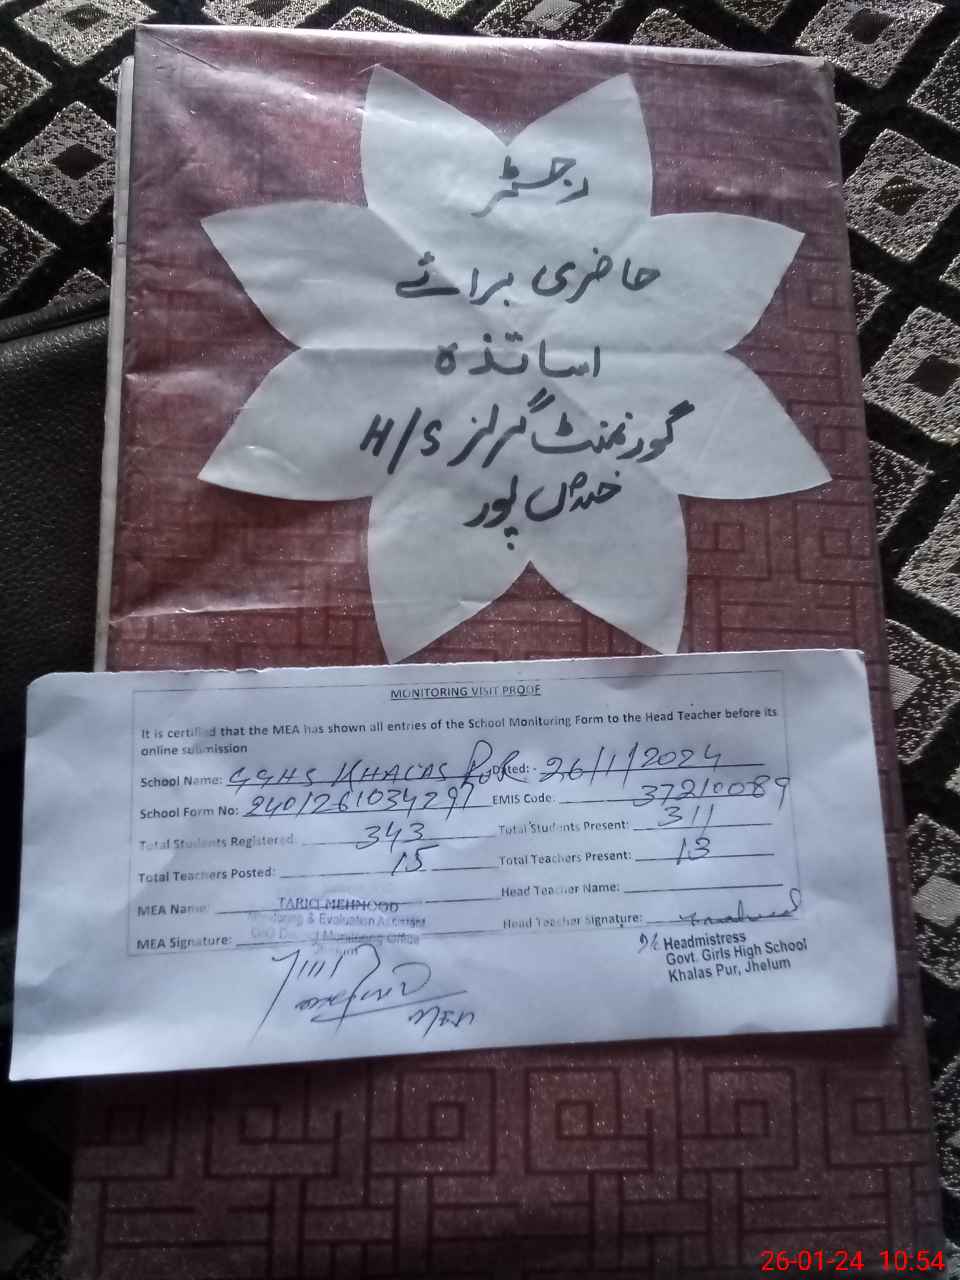 رجسٹر
حاضری برائے
اساتذہ
گورنمنٹ گرلز H/S
خلاص پور
MONITORING VISIT PROOF
It is certified that the MEA has shown all entries of the School Monitoring Form to the Head Teacher before its
online submission
School Name: GGHS KHALAS PUR Dated:- 26/1/2024
School Form No: 2401261034297 EMIS Code: 37210089
Total Students Registered: 343 Total Students Present: 311
Total Teachers Posted: 15 Total Teachers Present: 13
MEA Name: TARIQ MEHMOOD Head Teacher Name:
Monitoring & Evaluation Assistant
MEA Signature: Monitoring Office Head Teacher Signature:
Headmistress
Govt. Girls High School
Khalas Pur, Jhelum
MEA
26-01-24 10:54